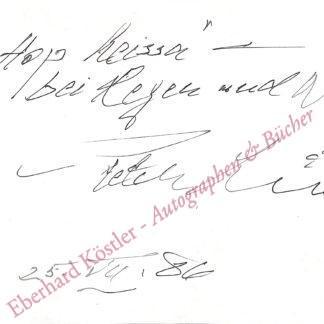 Hopp heissa"—
bei Regen und
— Peter
25. VII. 86
Eberhard Köstler - Autographen & Bücher